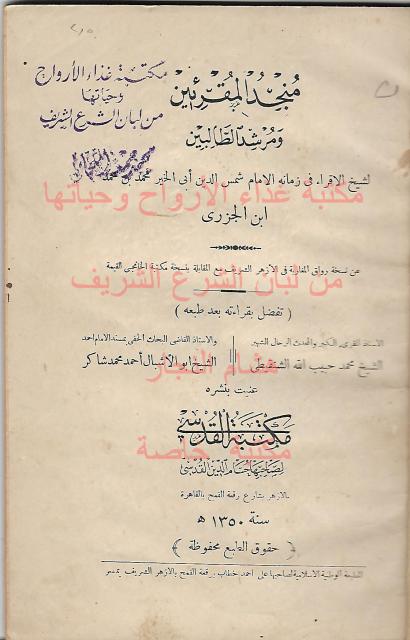 مكتبة غذاء الأرواح
وحياتها
من لبان الشرع الشريف
منجد المقرئين
ومرشد الطالبين
لشيخ الاقراء في زمانه الامام شمس الدين أبي الخير محمد بن محمد
ابن الجزرى
مكتبة غذاء الأرواح وحياتها
عن نسخة رواق المغاربة فى الازهر الشريف مع المقابلة بنسخة مكتبة الخانجى القيمة
من لبان الشرع الشريف
( تفضل بقراءته بعد طبعه )
الاستاذ المقرىء الكبير والمحدث الرحال الشهير
الشيخ محمد حبيب الله الشنقيطى
والاستاذ القاضى البحاث الحفى بمسند الامام احمد
الشيخ ابو الاشبال أحمد محمد شاكر
هشام النجار
عنيت بنشره
مكتبة القدسي
مكتبة خاصة
لصاحبها حسام الدين القدسي
بالازهر بشارع رقعة القمح بالقاهرة
سنة ١٣٥٠ ه
( حقوق الطبع محفوظة )
المطبعة الوطنية الاسلامية لصاحبها على احمد خطاب برقعة القمح بالازهر الشريف بمصر